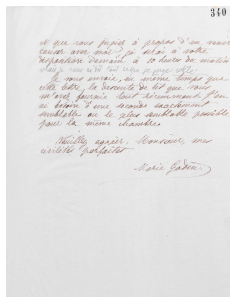 340
et que vous jugiez à propos d'en venir
causer avec moi, je serai à votre
disposition demain à 10 heures du matin
Je vous envoie, en même temps que
cette lettre, la descente de lit que vous
m'avez fournie tout récemment. J'en
ai besoin d'une seconde exactement
semblable ou le plus semblable possible
pour la même chambre.
Veuillez agréer, Monsieur, mes
civilités parfaites
Marie